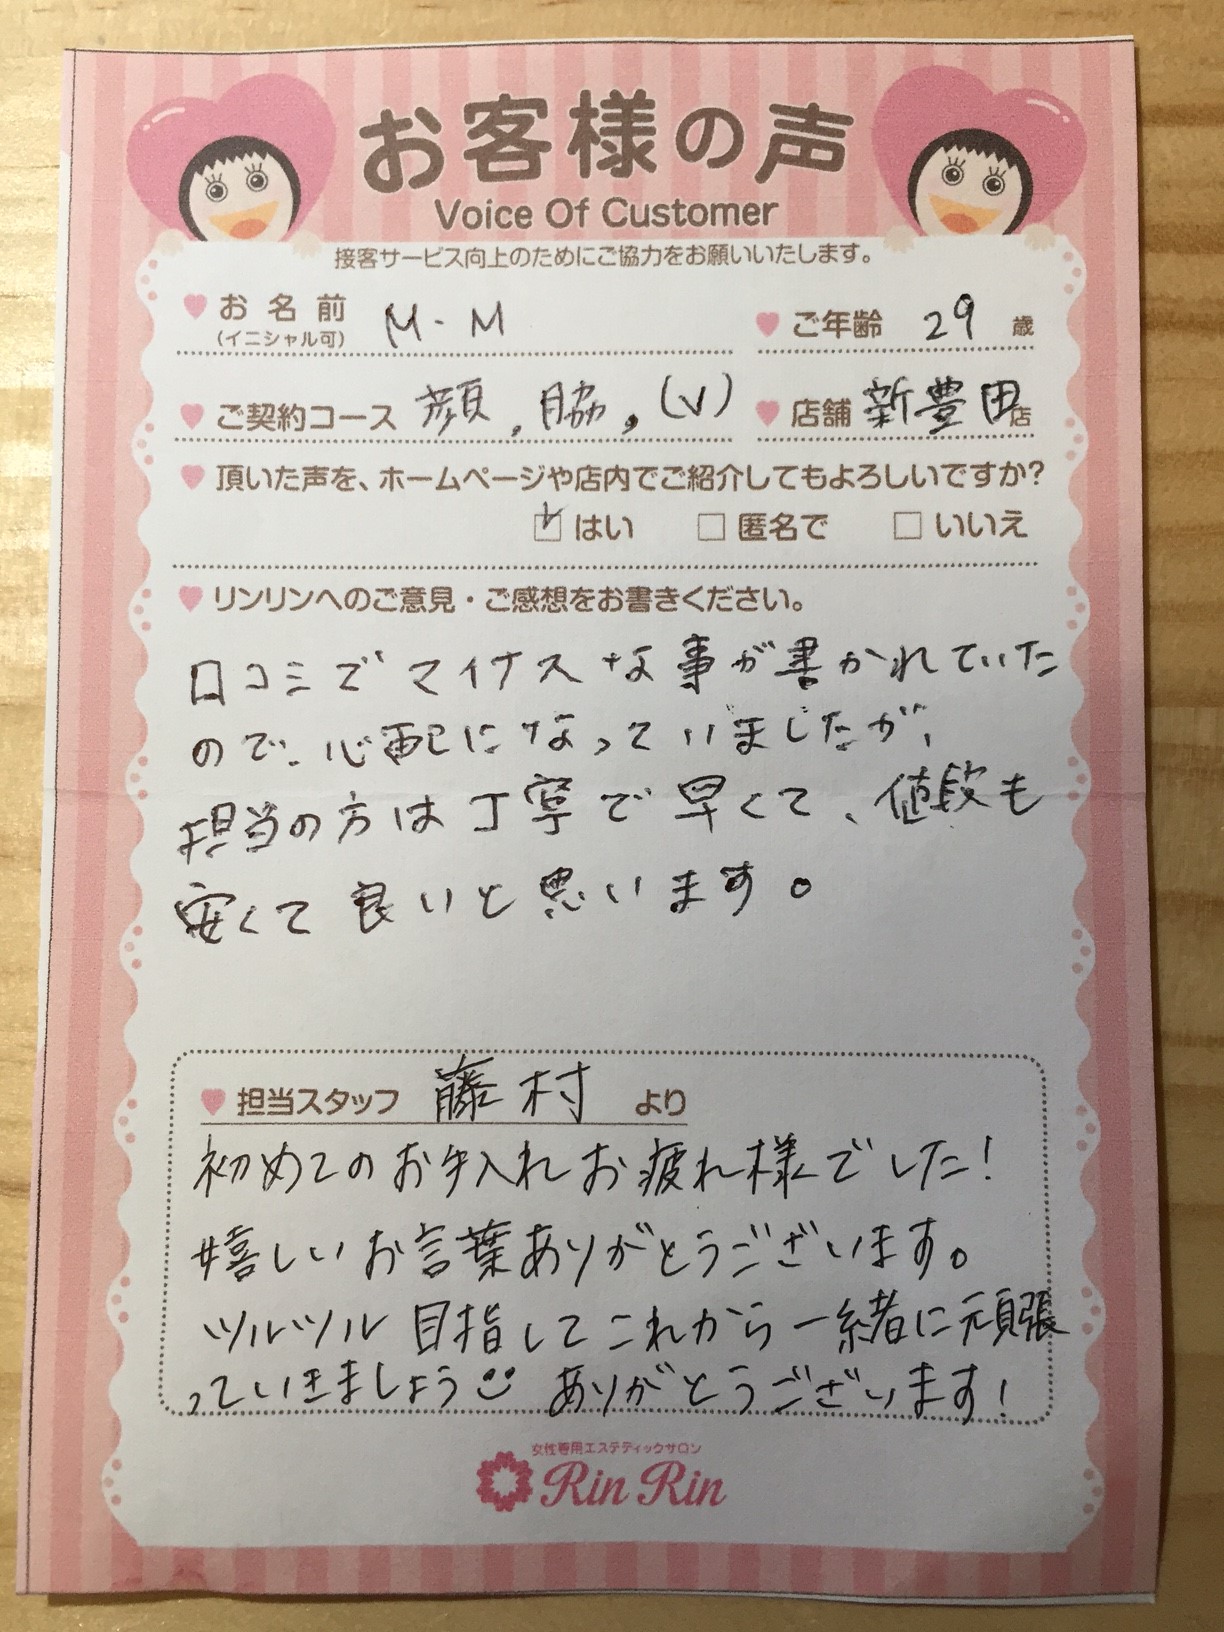 お客様の声
Voice Of Customer
接客サービス向上のためにご協力をお願いいたします。
お名前 (イニシャル可) M-M ご年齢 29 歳
ご契約コース 顔, 脇, (V) 店舗 新豊田店
頂いた声を、ホームページや店内でご紹介してもよろしいですか?
はい 匿名で いいえ
リンリンへのご意見・ご感想をお書きください。
口コミでマイナスな事が書かれていた
ので、心配になっていましたが、
担当の方は丁寧で早くて、値段も
安くて良いと思います。
担当スタッフ 藤村 より
初めてのお手入れお疲れ様でした!
嬉しいお言葉ありがとうございます。
ツルツル目指してこれから一緒に頑張
っていきましょう ありがとうございます!
女性専用エステティックサロン
Rin Rin